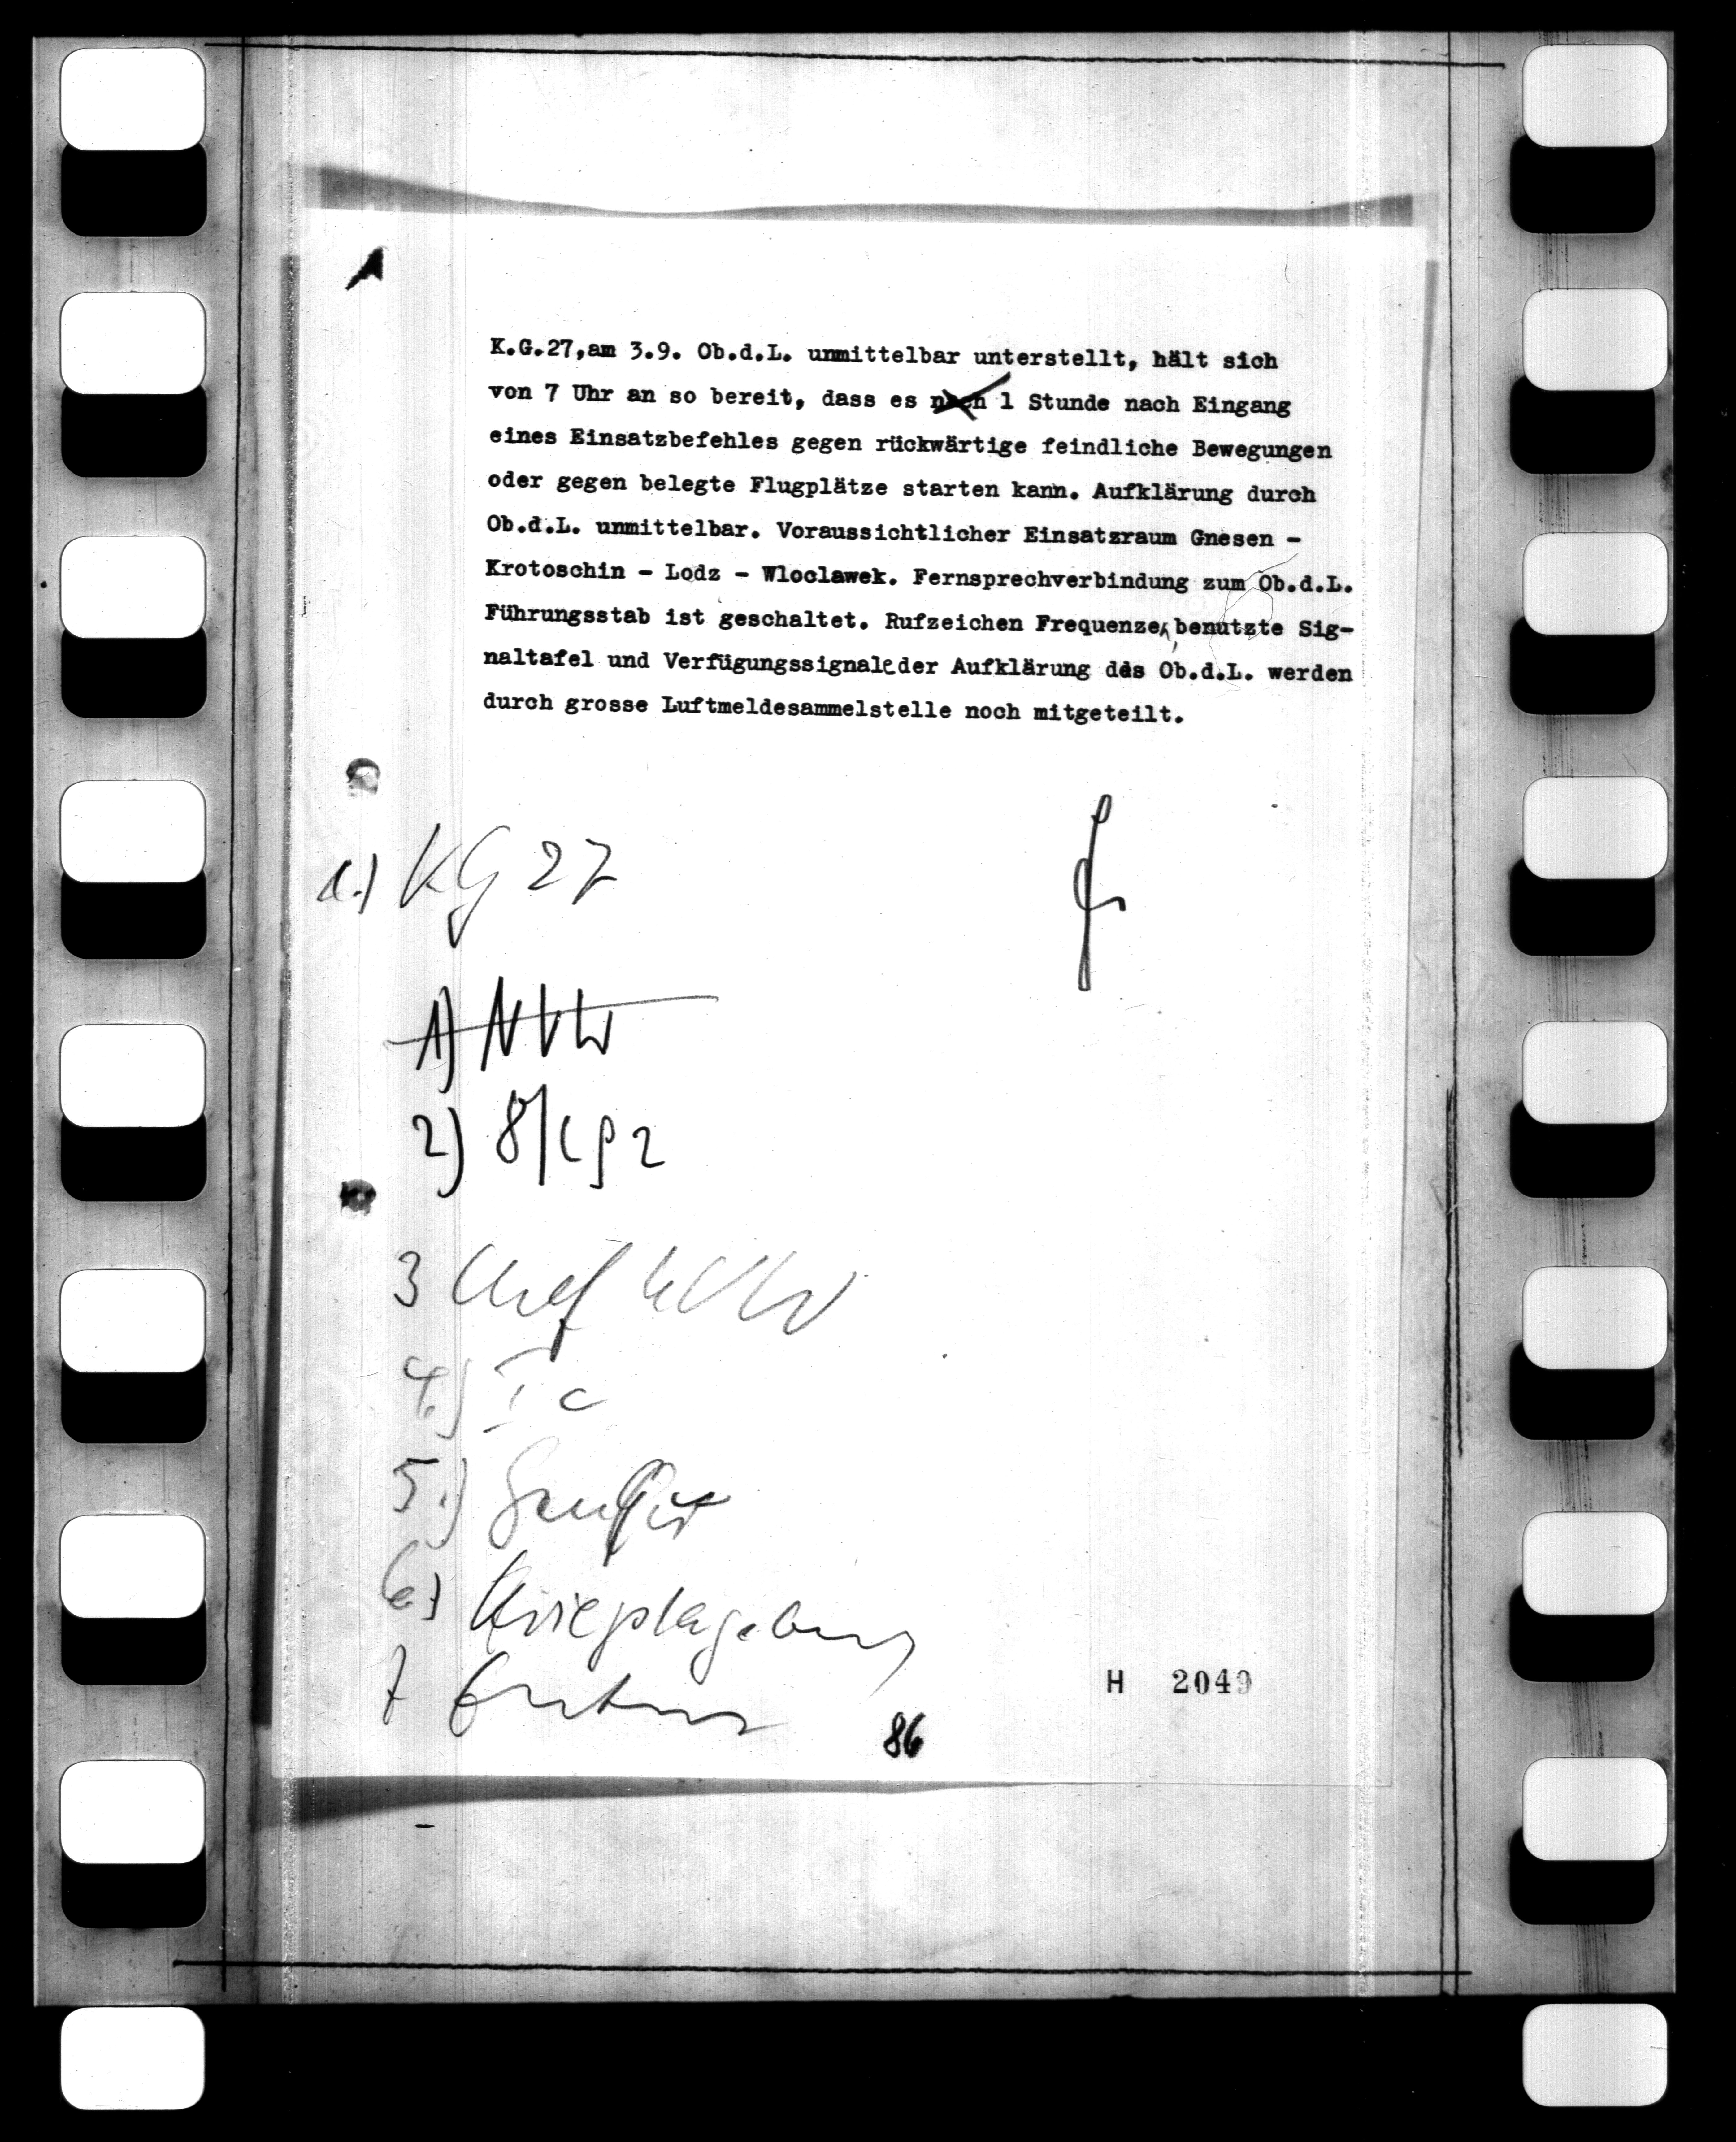 K.G.27,am 3.9. Ob.d.L. unmittelbar unterstellt, hält sich
von 7 Uhr an so bereit, dass es 1 Stunde nach Eingang
eines Einsatzbefehles gegen rückwärtige feindliche Bewegungen
oder gegen belegte Flugplätze starten kann. Aufklärung durch
Ob.d.L. unmittelbar. Voraussichtlicher Einsatzraum Gnesen -
Krotoschin - Lodz - Wloclawek. Fernsprechverbindung zum Ob.d.L.
Führungsstab ist geschaltet. Rufzeichen Frequenzen, benutzte Sig-
naltafel und Verfügungssignale der Aufklärung des Ob.d.L. werden
durch grosse Luftmeldesammelstelle noch mitgeteilt.
a.) KG 27
1) NVW
2)
3 Chef
4.) Ic
5.)
6.) Kriegstagebuch
7
86
H 2049